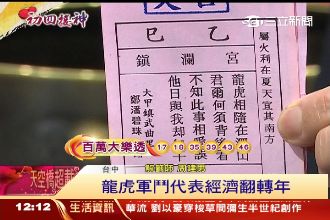 初四接神
三立新聞
乙巳
屬火利在夏天宜其南方
鎮瀾宮
龍虎相隨在深山
君爾何須背後看
不知此事相愛誤
他日與我却一般
大甲鎮武曲里
鄭潘碧珠
百萬大樂透
17 18 35 39 43 46
台中
龍虎軍鬥代表經濟翻轉年
12:12
生活資訊
華流 劉以豪穿梭草間彌生半世紀創作